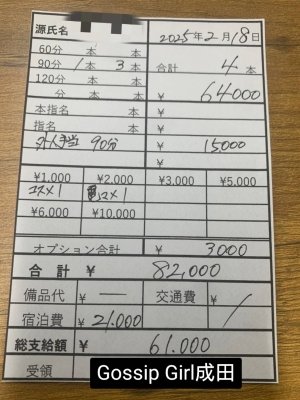 源氏名
2025年2月18日
60分 本 本
90分 1本 3本 合計 4本
120分 本 本
分 本 本 ¥ 64000
本指名 ¥
指名 ¥
外人手当 90分 ¥ 15000
¥
¥1,000 ¥2,000 ¥3,000 ¥5,000
コス×1
¥6,000 ¥10,000
オプション合計 ¥ 3000
合計 ¥ 82,000
備品代 ¥ ― 交通費 ¥ /
宿泊費 ¥ 21.000
総支給額 ¥ 61.000
受領
Gossip Girl成田